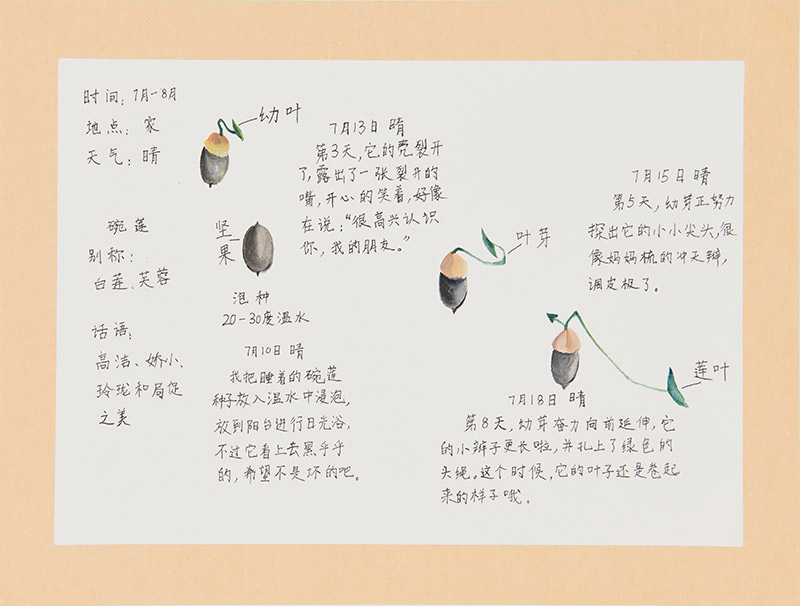 时间：7月-8月
地点：家
天气：晴
碗莲
别称：
白莲、芙蓉
话语：
高洁、娇小、
玲珑和局促
之美
幼叶
坚
果
泡种
20-30度温水
7月10日 晴
我把睡着的碗莲
种子放入温水中浸泡，
放到阳台进行日光浴，
不过它看上去黑乎乎
的，希望不是坏的吧。
7月13日 晴
第3天，它的壳裂开
了，露出了一张裂开的
嘴，开心的笑着，好像
在说：“很高兴认识
你，我的朋友。”
叶芽
7月15日 晴
第5天，幼芽正努力
探出它的小小尖头，很
像妈妈梳的冲天辫，
调皮极了。
莲叶
7月18日 晴
第8天，幼芽奋力向前延伸，它
的小辫子更长啦，并扎上了绿色的
头绳。这个时候，它的叶子还是卷起
来的样子哦。